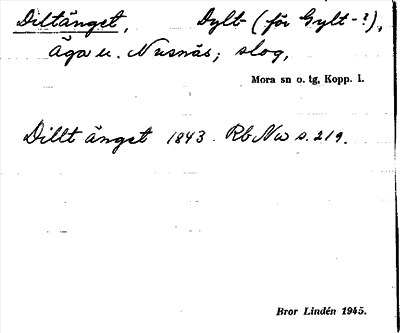 Diltänget, Dylt- (för Gylt-?),
Äga u. Nusnäs; slog,
Mora sn o. tg, Kopp. l.
Dillt änget 1843. Rb Nw s. 219.
Bror Lindén 1945.